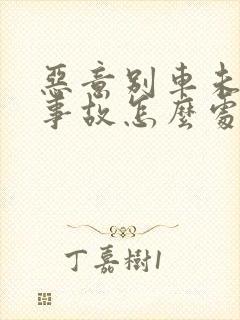 惡意別車未
事故怎麼處
丁嘉樹1